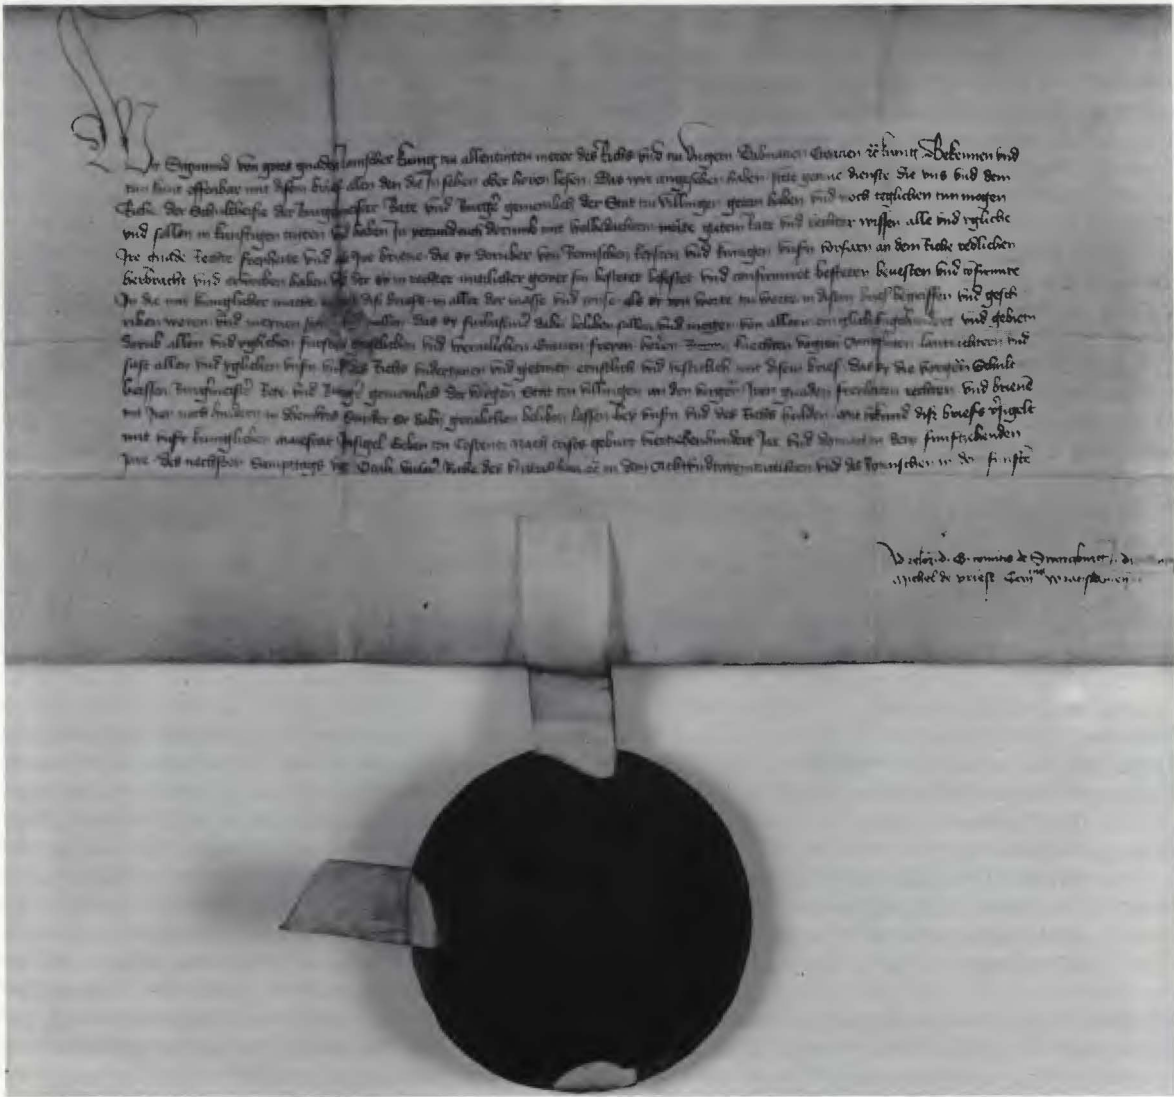 Wir Sigmund von gotes gnaden Romischer kunig zu allentziten merer des Richs vnd zu Vngern Dalmatien Croatien ꝛc kunig Bekennen vnd
tun kunt offenbar mit disem brief allen den die In sehen oder horen lesen Das wir angesehen haben stete getrue dienste die vns vnd dem
Riche der Schultheisse der Burgermeister Rete vnd Burger gemeinlich der Stat zu Villingen getan haben vnd noch teglichen tun mogen
vnd sollen in kunftigen ziten vnd haben In vnd ouch dorumb mit wolbedachtem mute gutem Rate vnd rechter wissen alle vnd ygliche
Ire gnade Rechte fryheite vnd Ire brieue die sy doruber von Romischen keysern vnd kunigen vnsern vorfarn an dem Riche redlichen
herbracht vnd erworben haben der sy in rechter gewer sin bestetet beuestet vnd confirmiret besteten beuesten vnd confirmiren
In die mit kuniglicher macht diß briefs in aller der masse vnd wise als sy von worte zu worte in disem brief begriffen vnd gesch
riben weren vnd meynen das sy furbasmer dabei beliben sollen vnd mogen von allermeniglich vngehindert vnd gebieten
dorumb allen vnd yglichen fursten geistlichen vnd werntlichen Grauen fryen herren knechten vogten Amptluten lantrichtern vnd
sust allen vnd yglichen vnsern vnd des Richs vndertanen vnd getruen ernstlich vnd vesticlich mit disem brief das sy die vorgen Schult
heissen Burgermeister Rete vnd Burger gemeinlich der vorgen Stat zu Villingen an den vorgen Iren gnaden fryheiten rechten vnd brieuen
nit Irren noch hindern in dheinwis Sunder sy dabey gerulichen beliben lassen bey vnsern vnd des Richs hulden mit vrkund diß briefs versigelt
mit vnser kuniglichen maiestat Insigel Geben zu Costentz Nach crists geburt viertzehenhundert Jar vnd dornach in dem funftzehenden
Jare des nechsten Samptztags vnser Riche des Vngrischen ꝛc in dem Achtvndtzweintzigisten vnd des Romischen in dem funften
d. G. comitem de Swarczburg
Michel de Priest Canonicus Wratislauien